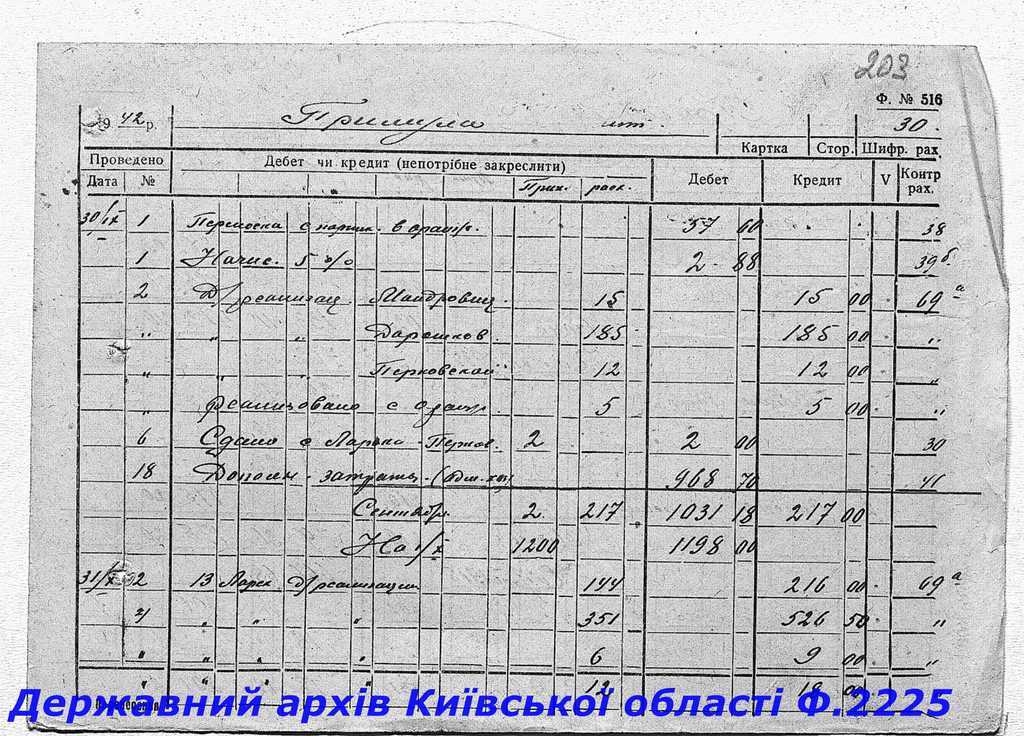 203
Ф. № 516
1942 р. Примула шт. 30.
Картка Стор. Шифр. рах.
Проведено Дебет чи кредит (непотрібне закреслити) Дебет Кредит V Контр рах.
Дата № Прих. расх.
30/IX 1 57 60 38
1 Начис. 5 % 2 88 39 б.
2 Д/реализац. 15 15 00 69 а
" " " Дарошков 185 185 00 "
" " " Перковской 12 12 00 "
" реализовано с 5 5 00 "
6 Сдано с Ларька 2 2 00 30
18 Дополн. затраты 968 70 41
Сентябрь 2 217 1031 18 217 00
На 1/X 1200 1198 00
31/X 32 13 Ларек д/реализации 144 216 00 69 а
" " " " 351 526 50 "
" " " " 6 9 00 "
" " " " 12 18 00
Державний архів Київської області Ф.2225